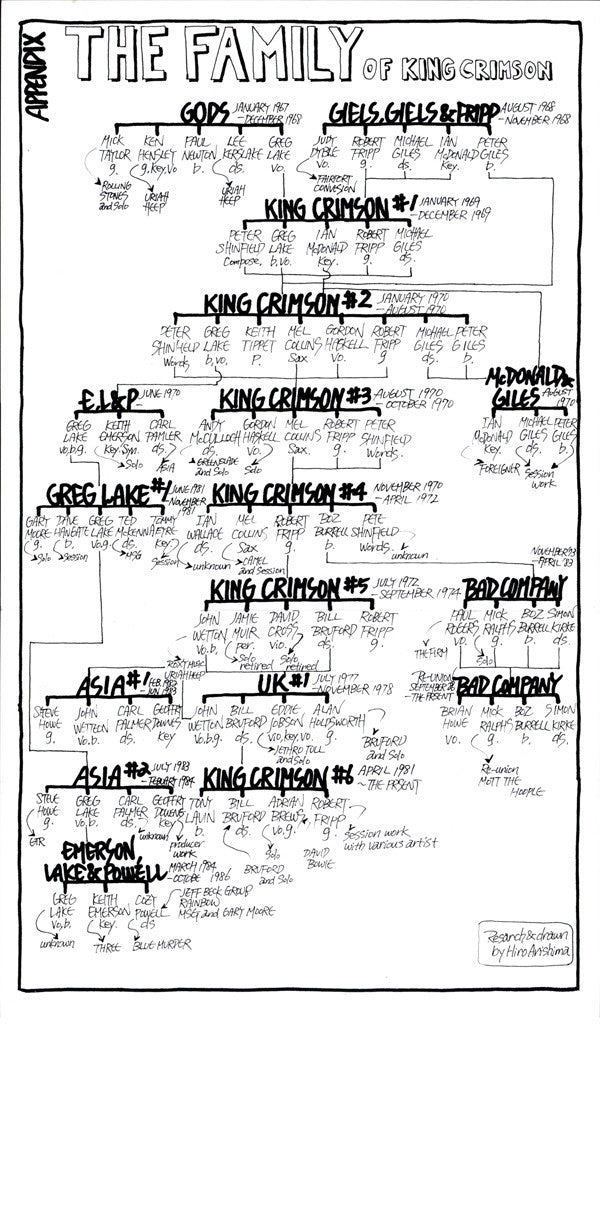 APPENDIX
THE FAMILY OF KING CRIMSON
GODS JANUARY 1967 – DECEMBER 1968
MICK TAYLOR g.
KEN HENSLEY g.key,vo
PAUL NEWTON b.
LEE KERSLAKE ds.
GREG LAKE vo.
ROLLING STONES and solo
URIAH HEEP
URIAH HEEP
GIELS, GIELS & FRIPP AUGUST 1968 – NOVEMBER 1968
JUDY DYBLE vo.
ROBERT FRIPP g.
MICHAEL GILES ds.
IAN McDONALD Key.
PETER GILES b.
FAIRPORT CONVESION
KING CRIMSON #1 JANUARY 1969 – DECEMBER 1969
PETER SHINFIELD Compose,
GREG LAKE b,vo.
IAN McDONALD Key.
ROBERT FRIPP g.
MICHAEL GILES ds.
KING CRIMSON #2 JANUARY 1970 – AUGUST 1970
PETER SHINFIELD Words
GREG LAKE b,vo.
KEITH TIPPET P.
MEL COLLINS Sax
GORDON HASKELL vo.
ROBERT FRIPP g
MICHAEL GILES ds.
PETER GILES b.
E.L&P – JUNE 1970
GREG LAKE vo,b,g.
KEITH EMERSON Key.Syn.
CARL PAMLER ds.
Solo
ASIA
KING CRIMSON #3 AUGUST 1970 – OCTOBER 1970
ANDY McCULLOCH ds.
GORDON HASKELL vo.
MEL COLLINS Sax.
ROBERT FRIPP g
PETER SHINFIELD Words.
GREENSLADE and Solo
Solo
McDONALD & GILES AUGUST 1970
IAN McDONALD Key.
MICHAEL GILES ds.
PETER GILES b.
FOREIGNER
Session work
GREG LAKE #1 JUNE 1981 – NOVEMBER 1981
GARY MOORE g.
DAVE
GREG LAKE vo.g.
TED McKENNA ds.
TOMMY EYRE key.
Solo
Session
MSG
Session
KING CRIMSON #4 NOVEMBER 1970 – APRIL 1972
IAN WALLACE ds.
MEL COLLINS Sax
ROBERT FRIPP g
BOZ BURRELL b.
PETE SHINFIELD Words.
unknown
CAMEL and Session
unknown
KING CRIMSON #5 JULY 1972 – SEPTEMBER 1974
JOHN WETTON vo.b.
JAMIE MUIR per.
DAVID CROSS vio.
BILL BRUFORD ds.
ROBERT FRIPP g.
ROXY MUSIC URIAH HEEP
Solo retired
Solo retired
BAD COMPANY
PAUL RODGERS vo.
MICK RALPHS g.
BOZ BURRELL b.
SIMON KIRKE ds.
THE FIRM
Solo
RE-UNION SEPTEMBER
THE PRSENT
BAD COMPANY
BRIAN HOWE vo.
MICK RALPHS g.
BOZ BURRELL b.
SIMON KIRKE ds.
Re-union MOTT THE HOOPLE
ASIA #1 FEB. 1982 – JUN. 1983
STEVE HOWE g.
JOHN WETTON vo.b.
CARL PALMER ds.
GEOFFRY DOWNES key
UK #1 JULY 1977 – NOVEMBER 1978
JOHN WETTON vo,b,g.
BILL BRUFORD ds.
EDDIE JOBSON vio,key,vo.
ALAN HOLDSWORTH g.
JETHRO TOLL and Solo
BRUFORD and Solo
ASIA #2 JULY 1983 – FEBUARY 1984
STEVE HOWE g
GREG LAKE vo.b.
CARL PALMER ds.
GEOFFRY DOWENS key
GTR
unknown
producer work
KING CRIMSON #6 APRIL 1981 – THE PRSENT
TONY LAVIN b.
BILL BRUFORD ds.
ADRIAN BREWS vo,g.
ROBERT FRIPP g.
Solo
BRUFORD and Solo
DAVID BOWIE
Session work with various artist
EMERSON, LAKE & POWELL MARCH 1984 – OCTOBE 1986
GREG LAKE vo,b.
KEITH EMERSON key.
COZY POWELL ds.
JEFF BECK GROUP RAINBOW MSG and GARY MOORE
unknown
THREE
BLUE MURPER
Resarch & drawn by Hiro Arishima